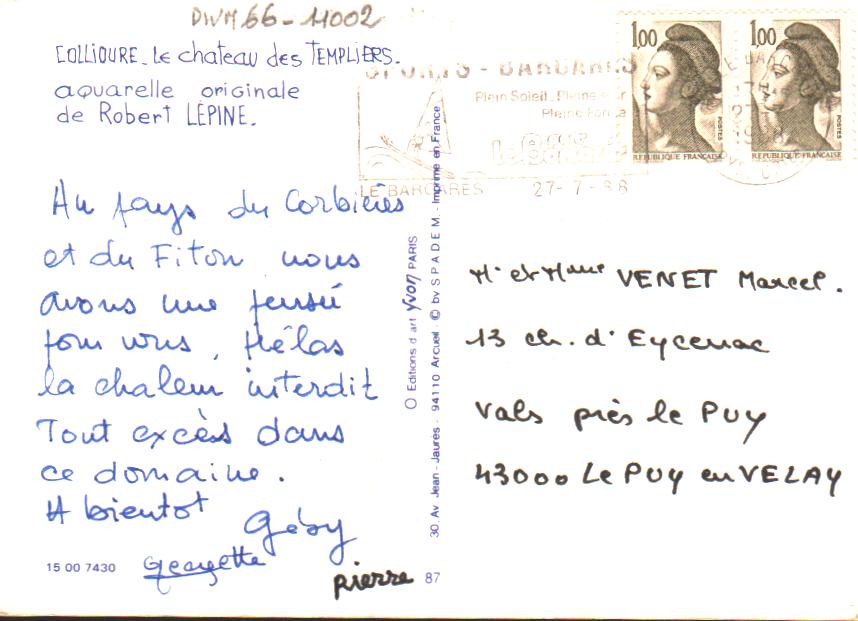 DWM 66-11002
COLLIOURE. Le chateau des TEMPLIERS.
aquarelle originale
de Robert LÉPINE.
Au pays du Corbières
et du Fitou nous
avons une pensée
pour vous, Hélas
la chaleur interdit
Tout excès dans
ce domaine.
A bientot
Géby
Georgette
pierre
15 00 7430
87
Editions d'art yvon PARIS
30, Av Jean-Jaurès - 94110 Arcueil - © by S.P.A.D.E.M. - Imprimé en France
SPORTS - BARCARES
Plein Soleil. Pleine
Pleine Forme
LE BARCARES
27-7-88
1,00
POSTES
REPUBLIQUE FRANCAISE
1,00
POSTES
REPUBLIQUE FRANCAISE
Mr et Mme VENET Marcel.
13 ch. d'Eycenac
Vals près le PUY
43000 Le PUY en VELAY